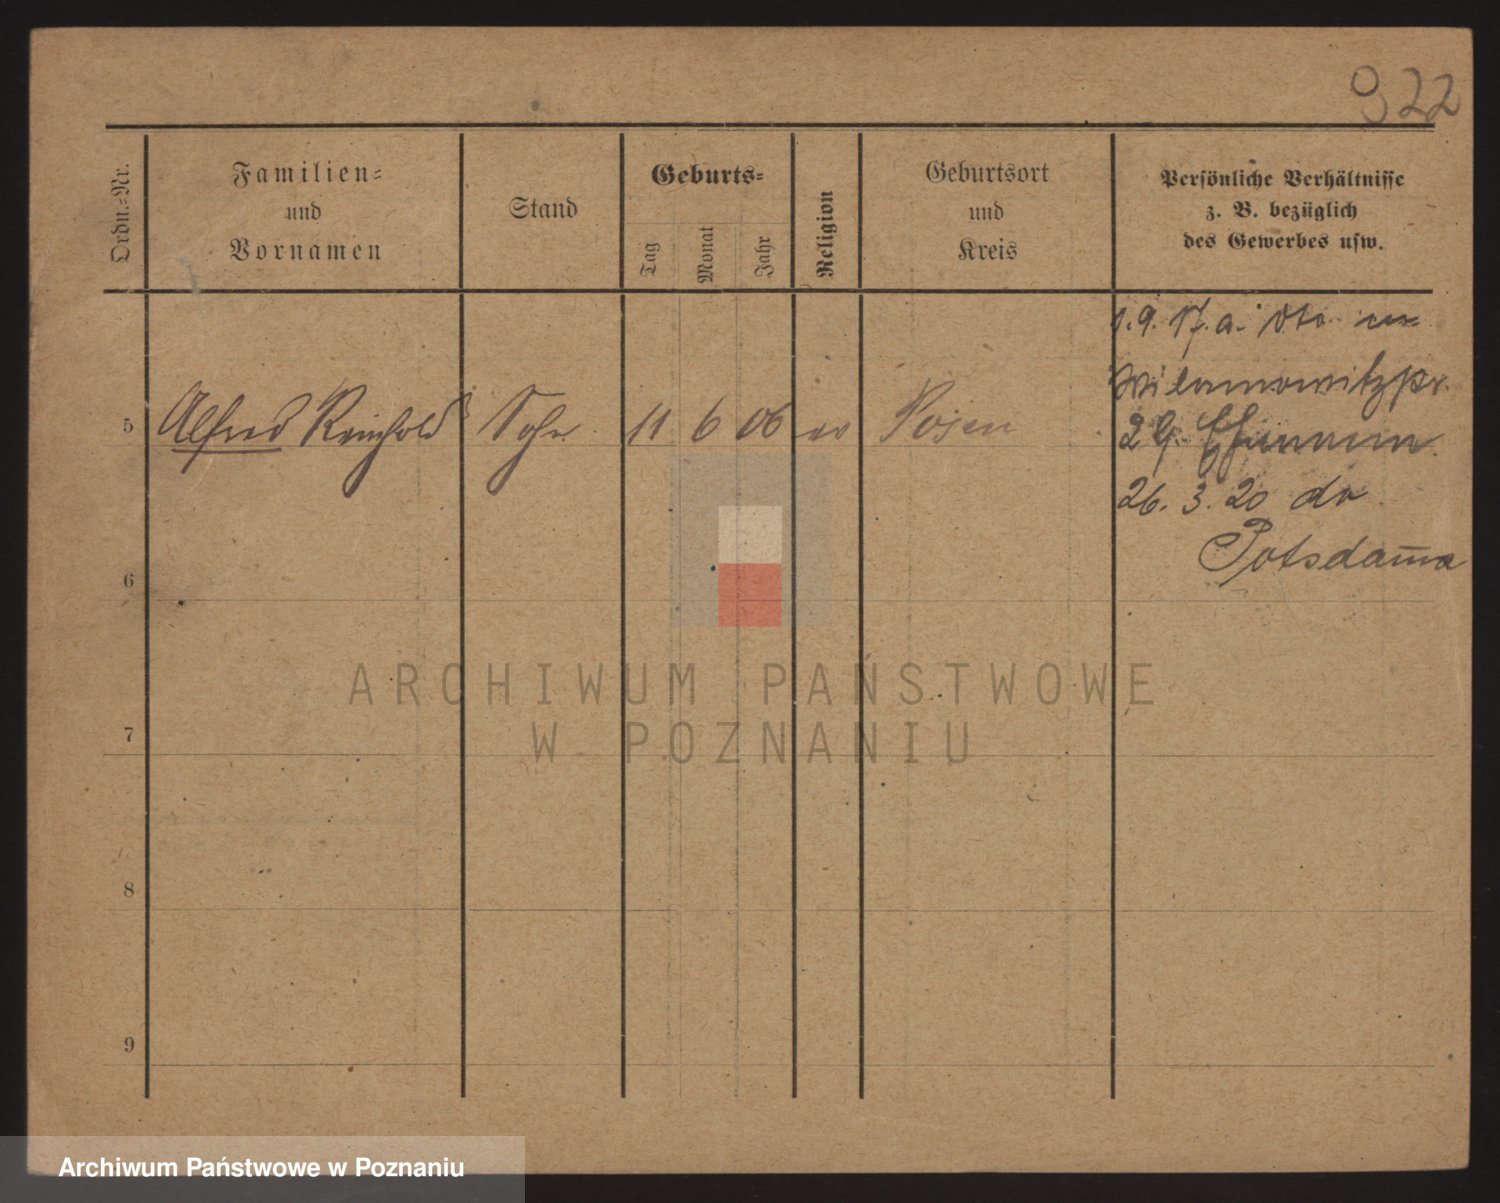 922
Ordn.-Nr.
Familien-
und
Vornamen
Stand
Geburts-
Tag
Monat
Jahr
Religion
Geburtsort
und
Kreis
Persönliche Verhältnisse
z. B. bezüglich
des Gewerbes usw.
1. 9. 17. a.
5 Alfred Reinhold Sohn 11 6 06 ev Posen
29.
26. 3. 20
Potsdam
6
7
8
9
ARCHIWUM PAŃSTWOWE
W POZNANIU
Archiwum Państwowe w Poznaniu